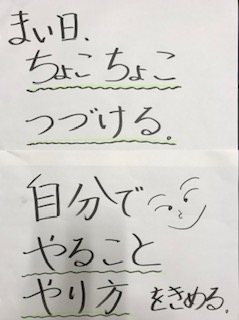 まい日、
ちょこちょこ
つづける。
自分で
やること
やり方 をきめる。